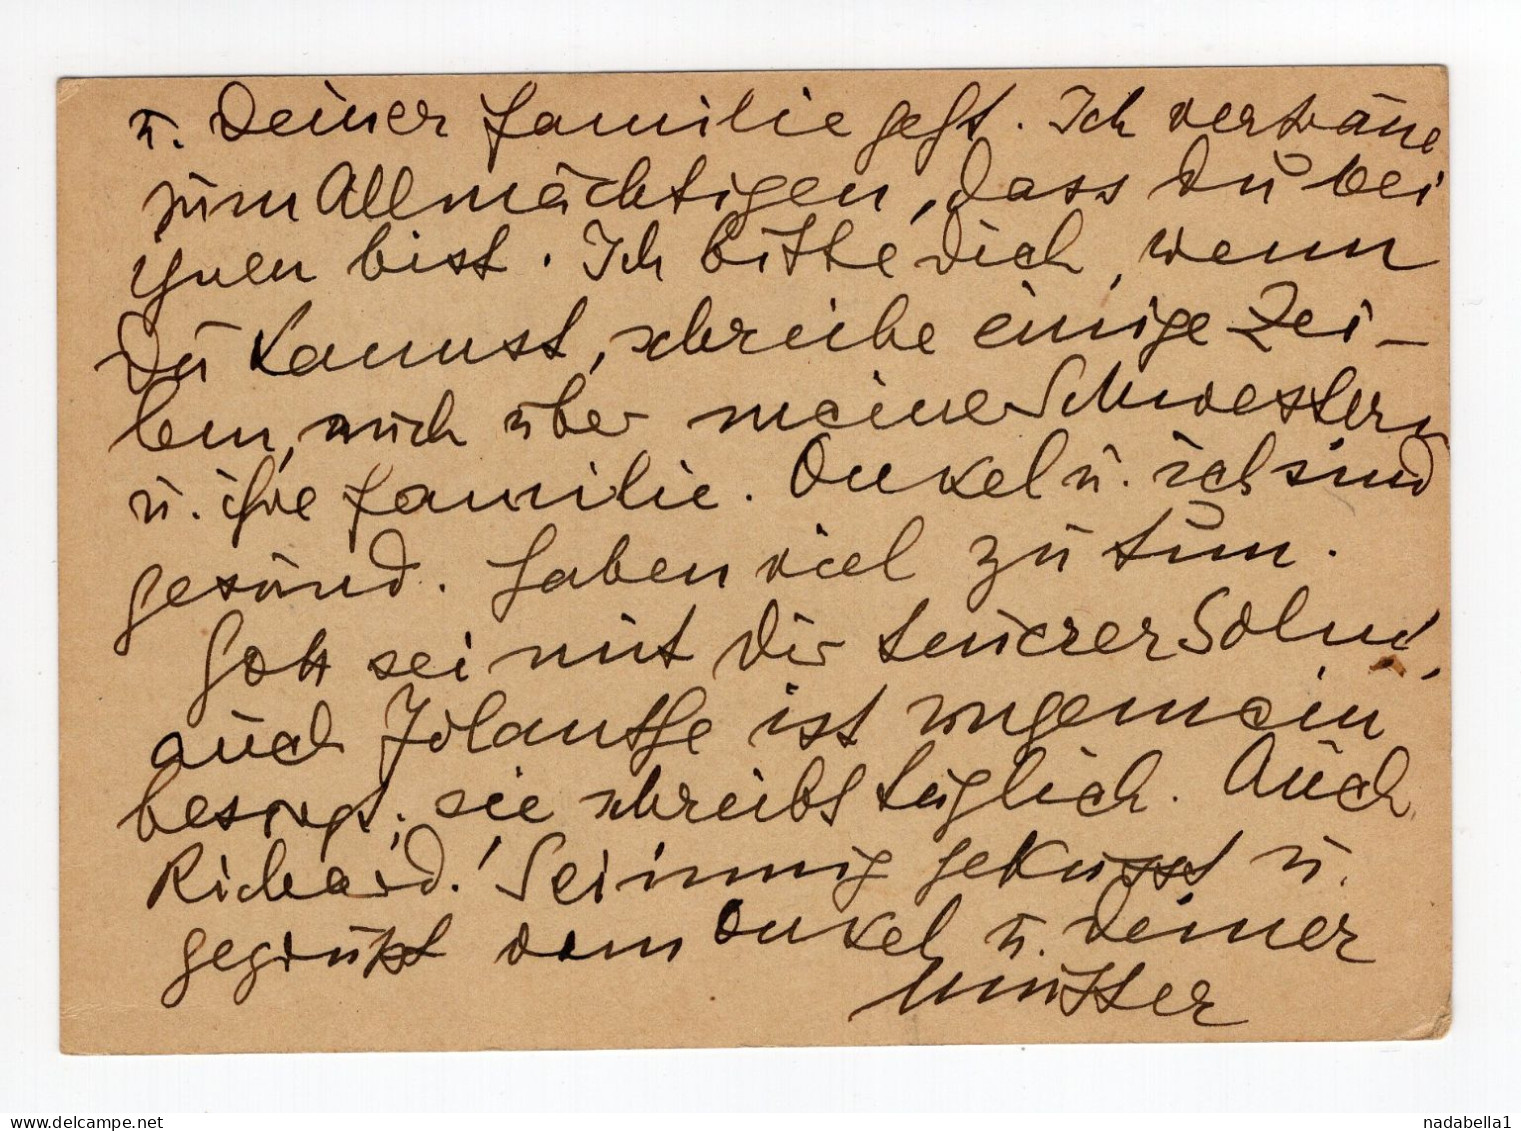 u. Deiner Familie geht. Ich vertraue
zum Allmächtigen, dass Du bei
ihnen bist. Ich bitte Dich, wenn
Du kannst, schreibe einige Zei-
len, auch über meine Schwestern
u. ihre Familie. Onkel u. ich sind
gesund. Haben viel zu tun.
Gott sei mit Dir teurer Sohn!,
auch Jolanthe ist ungemein
besorgt, sie schreibt täglich. Auch
Richard! Sei innig geküsst u.
gegrüsst vom Onkel u. Deiner
Mutter
nadabella1